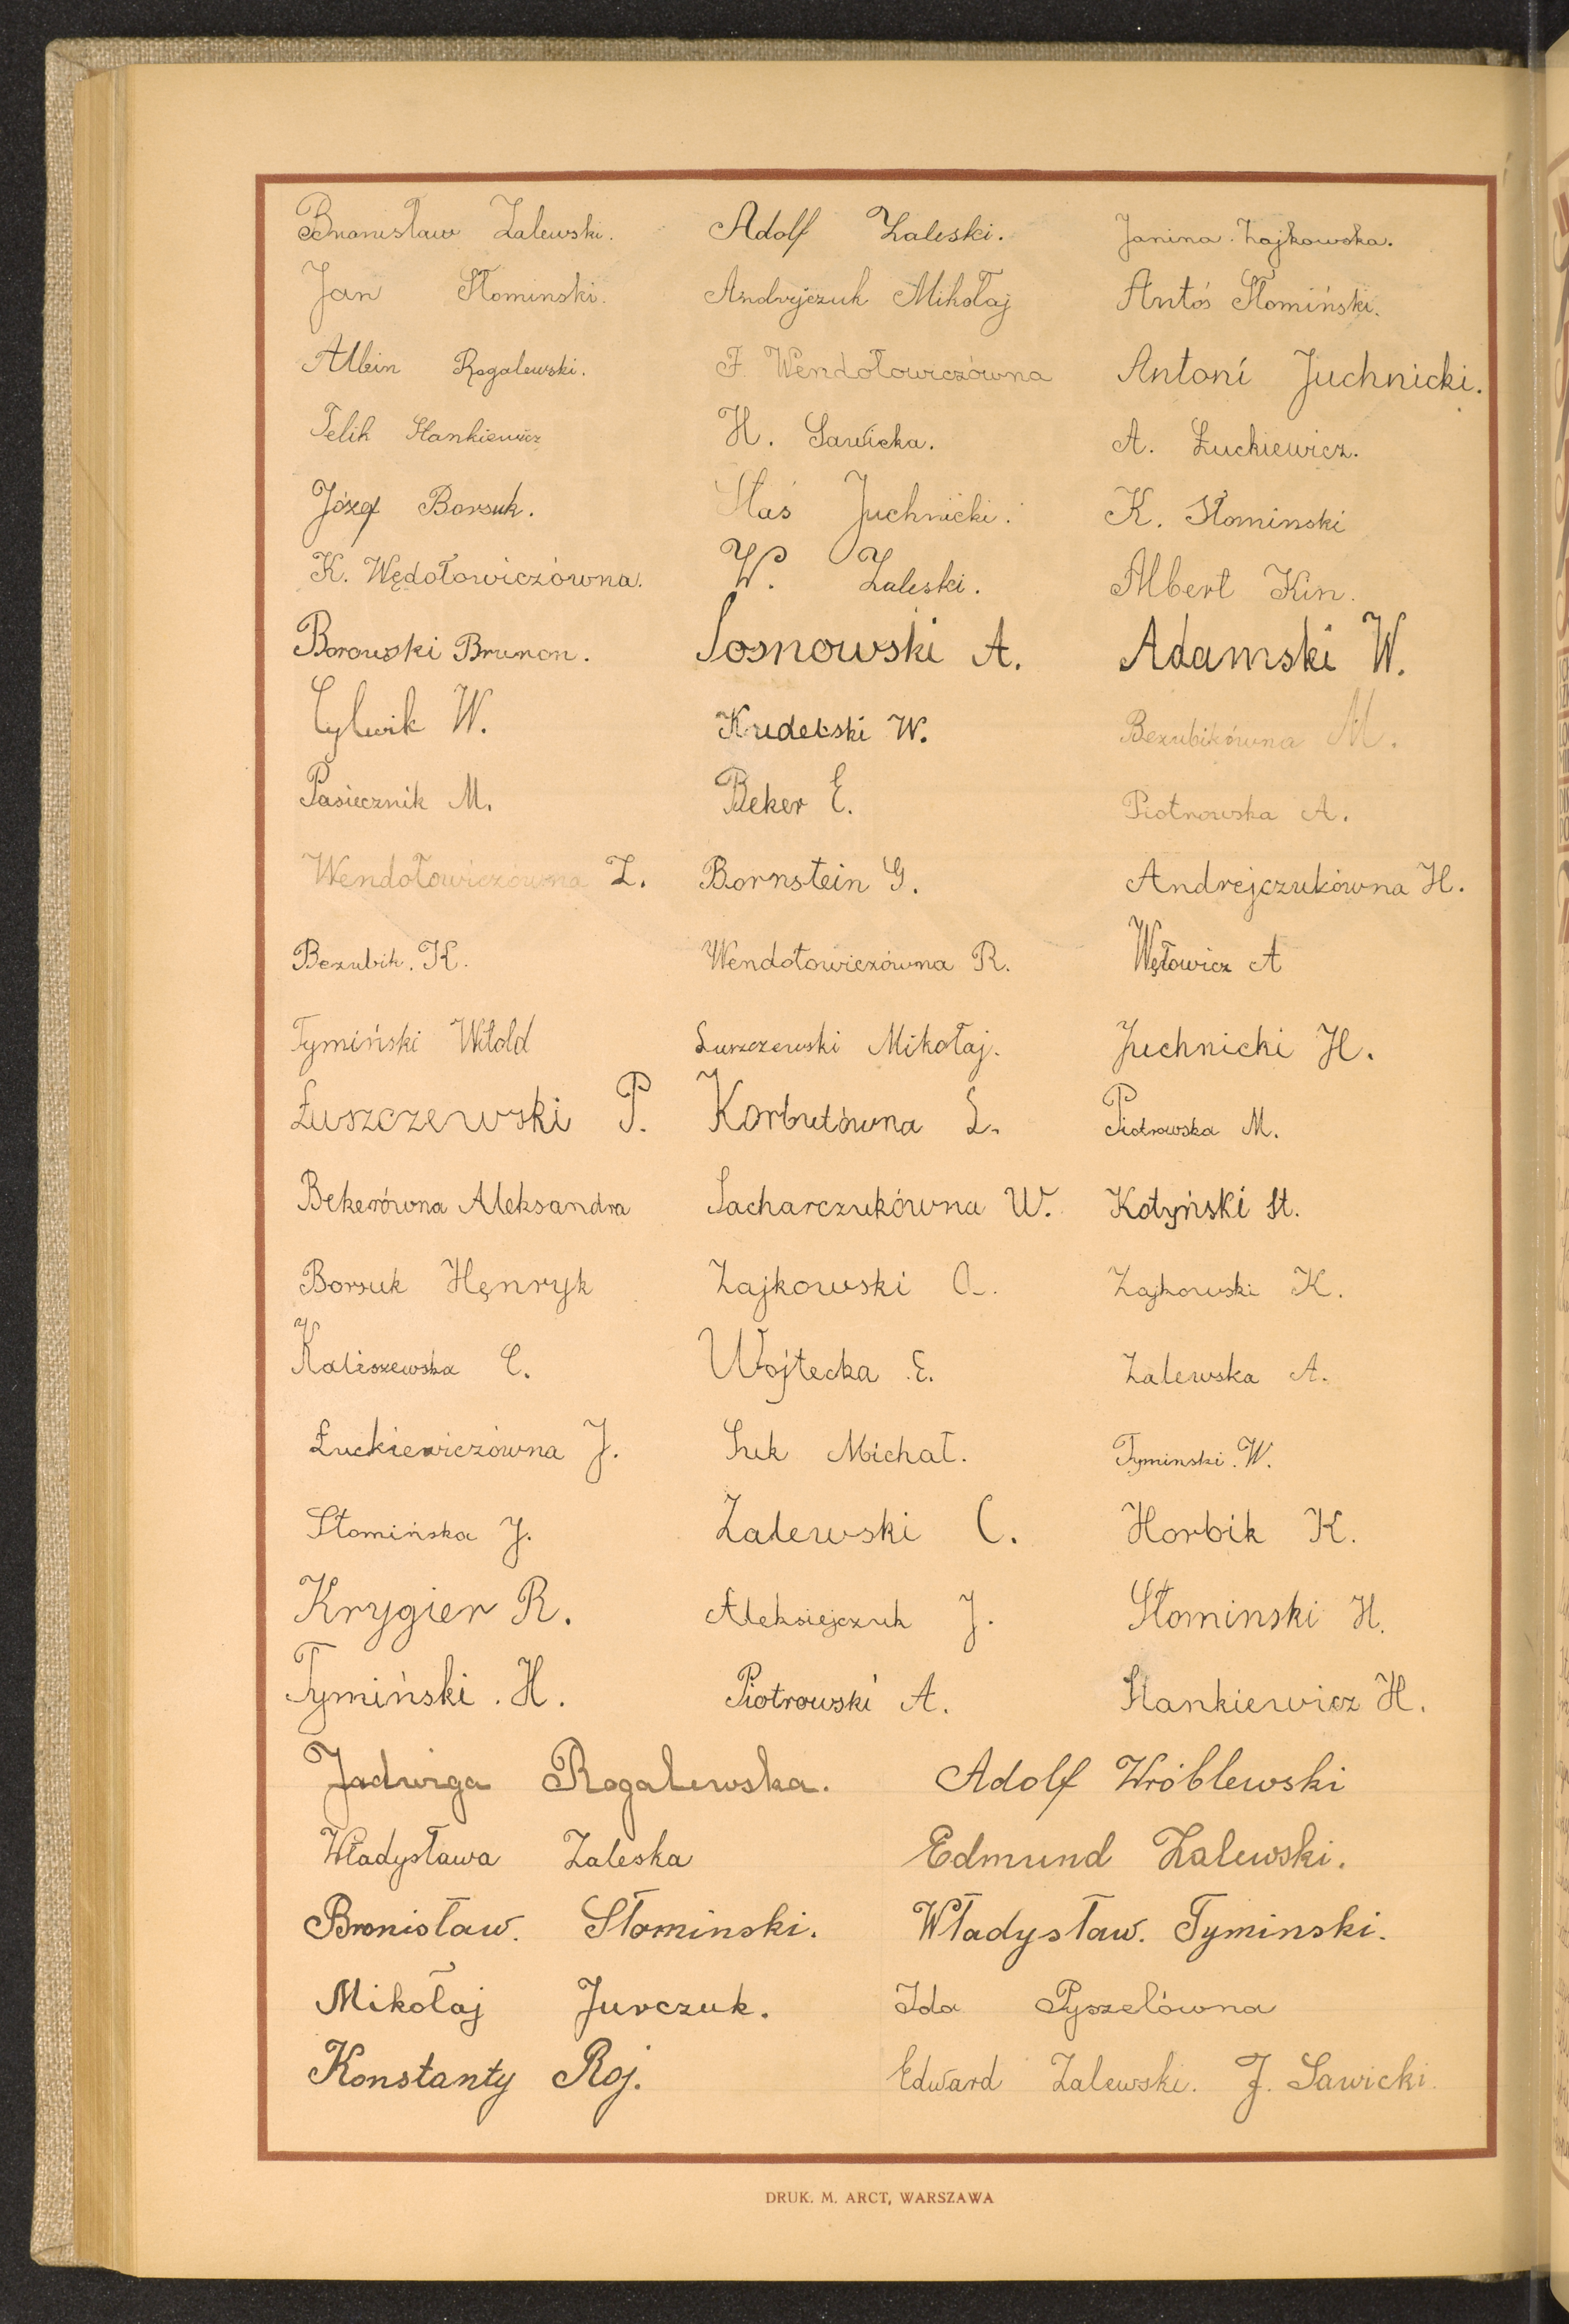 Bronisław Zalewski. Adolf Zaleski. Janina Zajkowska.
Jan Słominski. Andryjczuk Mikołaj Antoś Słomiński.
Albin Rogalewski. F. Wendołowiczówna Antoni Juchnicki.
Felik Stankiewicz H. Sawicka. A. Łuckiewicz.
Józef Borsuk. Staś Juchnicki. K. Słominski
K. Wędołowiczówna. W. Zaleski. Albert Kin.
Borowski Brunon. Sosnowski A. Adamski W.
Cylwik W. Kudelski W. Bezubikówna M.
Pasiecznik M. Beker E. Piotrowska A.
Wendołowiczówna Z. Bornstein G. Andrejczukówna H.
Bezubik. K. Wendołowiczówna R. Węłowicz A
Tymiński Witold Łuszczewski Mikołaj. Juchnicki H.
Łuszczewski P. Korbutówna L. Piotrowska M.
Bekerówna Aleksandra Sacharczukówna W. Kotyński St.
Borsuk Hęnryk Zajkowski A. Zajkowski K.
Kaliszewska C. Wojtecka E. Zalewska A.
Łuckiewiczówna J. Suk Michał. Tyminski. W.
Słomińska J. Zalewski C. Horbik K.
Krygier R. Aleksiejczuk J. Słominski H.
Tymiński. H. Piotrowski A. Stankiewicz H.
Jadwiga Rogalewska. Adolf Wróblewski
Władysława Zaleska Edmund Zalewski.
Bronisław. Słominski. Władysław. Tyminski.
Mikołaj Jurczuk. Ida Pyszelówna
Konstanty Roj. Edward Zalewski. J. Sawicki.
DRUK. M. ARCT, WARSZAWA